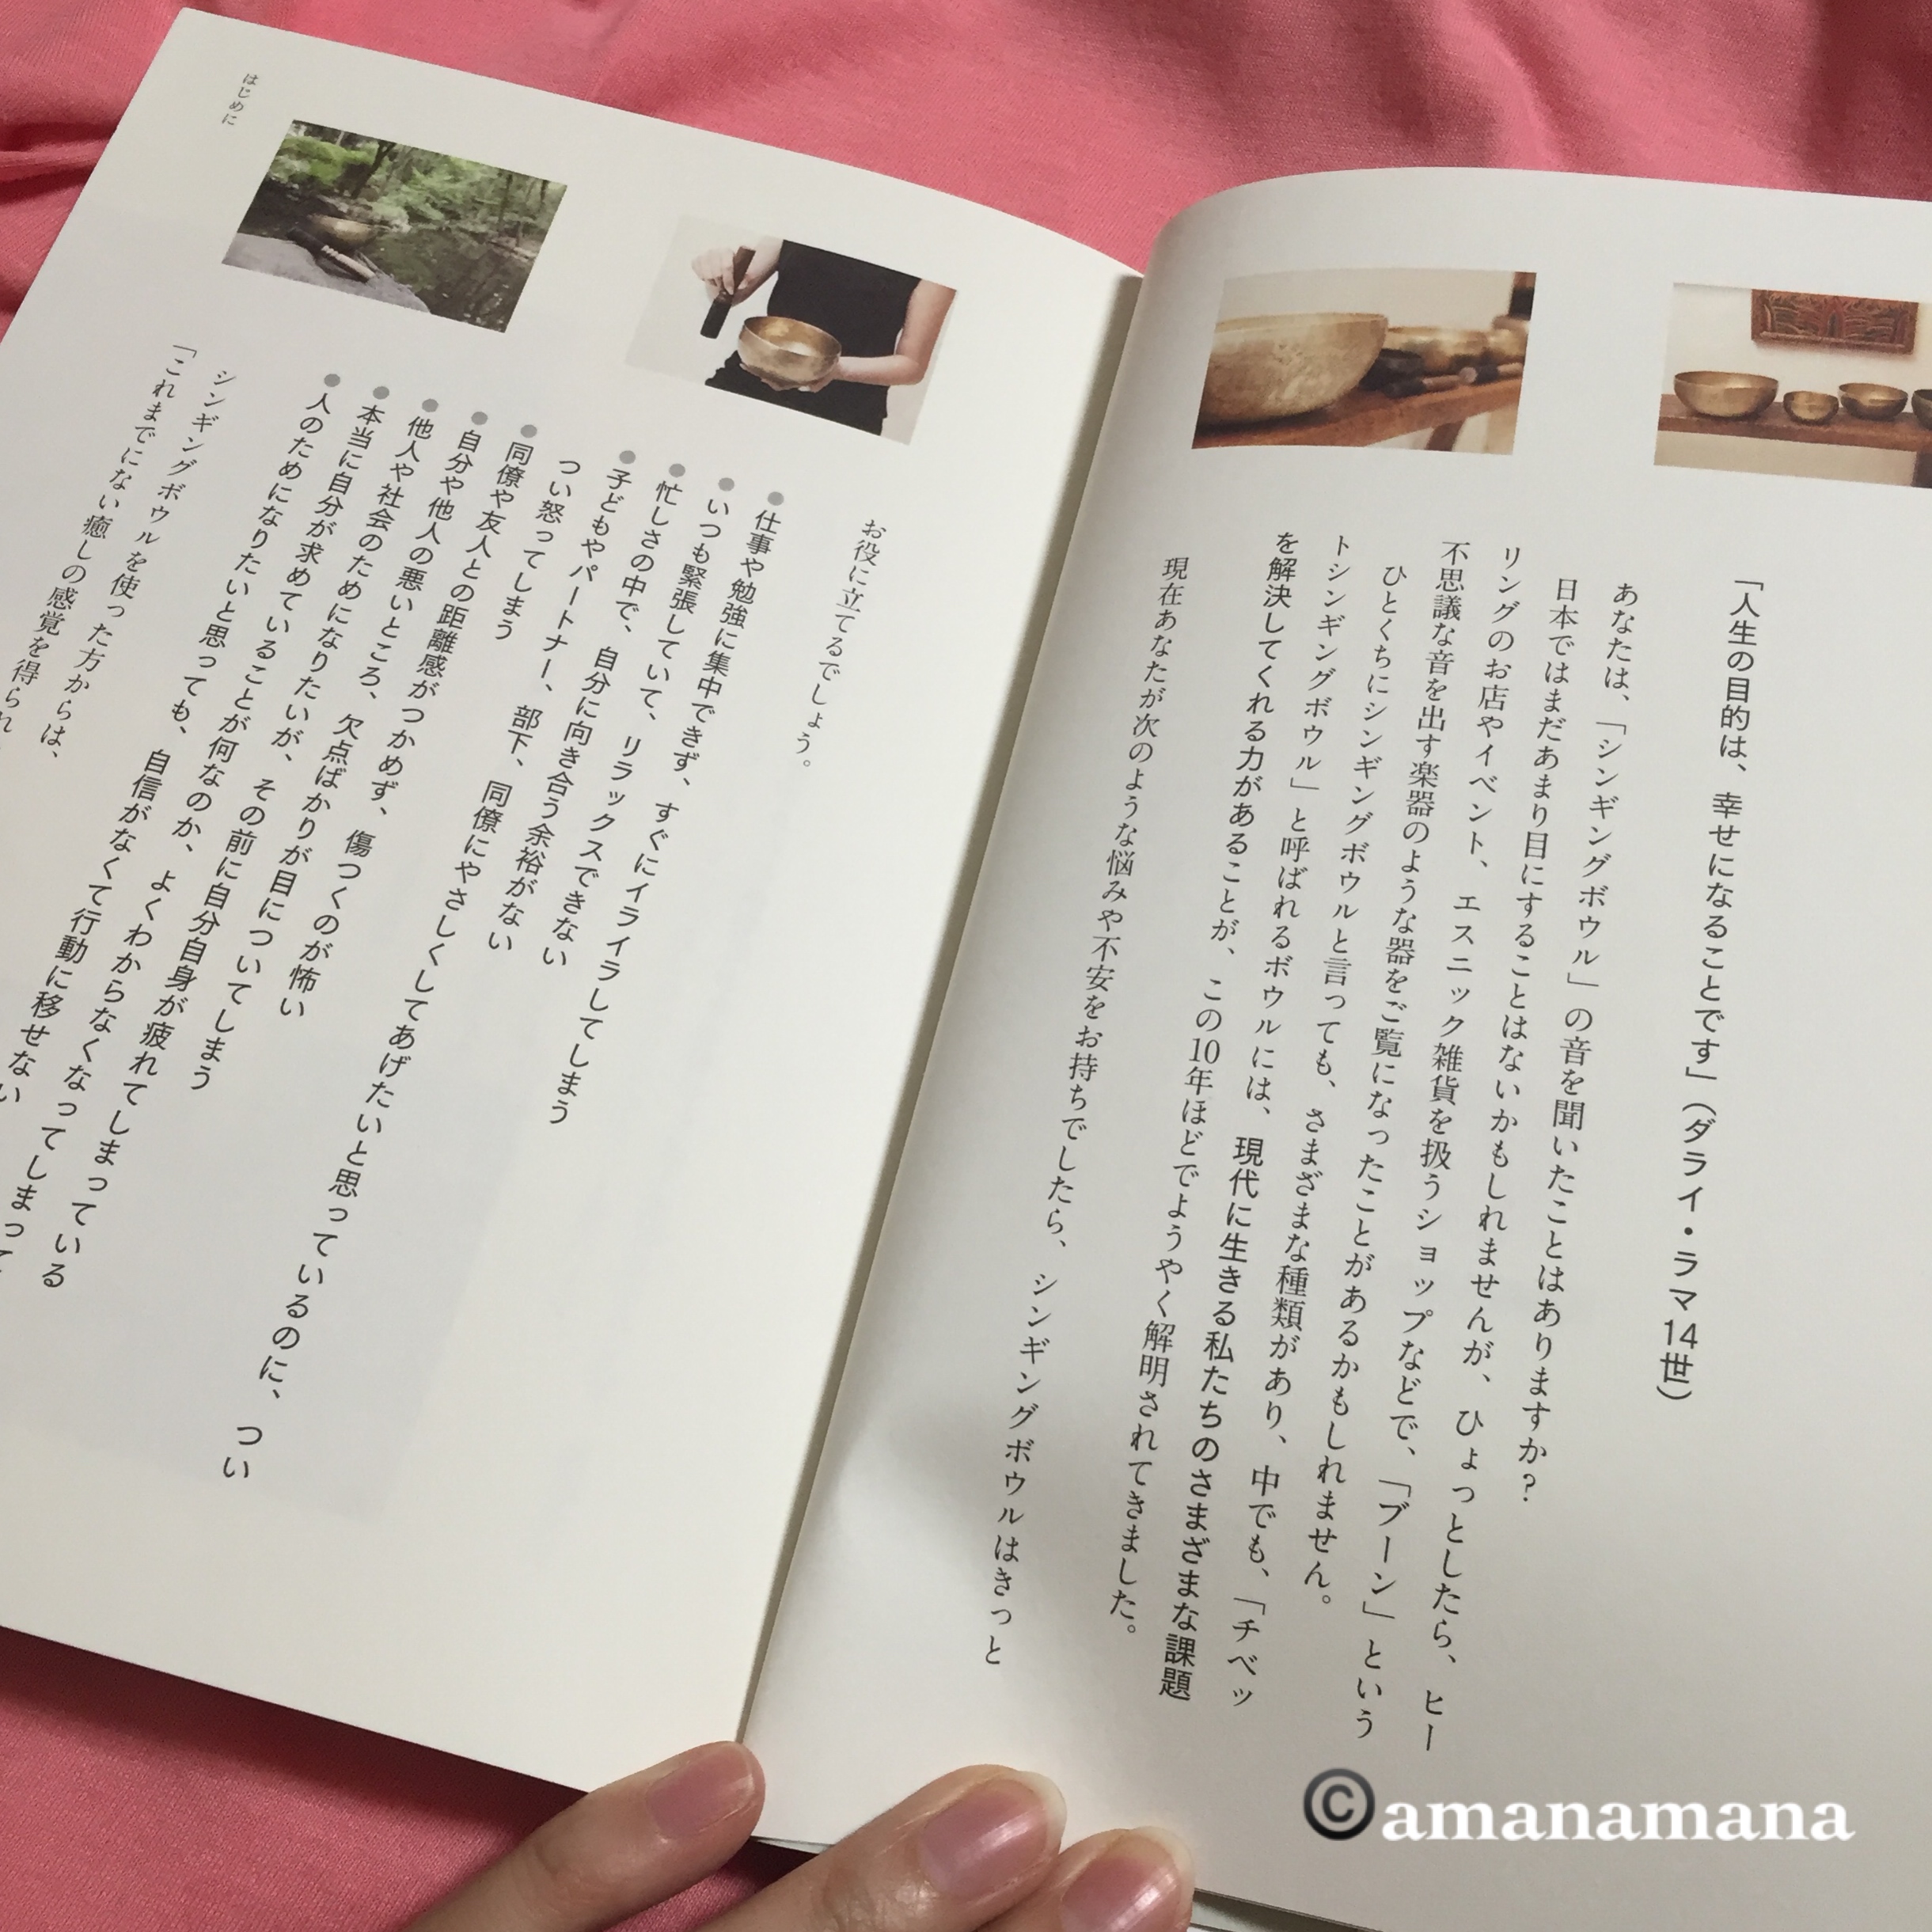 「人生の目的は、幸せになることです」（ダライ・ラマ14世）
あなたは、「シンギングボウル」の音を聞いたことはありますか?
日本ではまだあまり目にすることはないかもしれませんが、ひょっとしたら、ヒー
リングのお店やイベント、エスニック雑貨を扱うショップなどで、「ブーン」という
不思議な音を出す楽器のような器をご覧になったことがあるかもしれません。
ひとくちにシンギングボウルと言っても、さまざまな種類があり、中でも、「チベッ
トシンギングボウル」と呼ばれるボウルには、現代に生きる私たちのさまざまな課題
を解決してくれる力があることが、この10年ほどでようやく解明されてきました。
現在あなたが次のような悩みや不安をお持ちでしたら、シンギングボウルはきっと
はじめに
お役に立てるでしょう。
●仕事や勉強に集中できず、すぐにイライラしてしまう
●いつも緊張していて、リラックスできない
●忙しさの中で、自分に向き合う余裕がない
●子どもやパートナー、部下、同僚にやさしくしてあげたいと思っているのに、つい
つい怒ってしまう
●同僚や友人との距離感がつかめず、傷つくのが怖い
●自分や他人の悪いところ、欠点ばかりが目についてしまう
●他人や社会のためになりたいが、その前に自分自身が疲れてしまっている
●本当に自分が求めていることが何なのか、よくわからなくなってしまって
●人のためになりたいと思っても、自信がなくて行動に移せない
シンギングボウルを使った方からは、
「これまでにない癒しの感覚を得られ
©amanamana